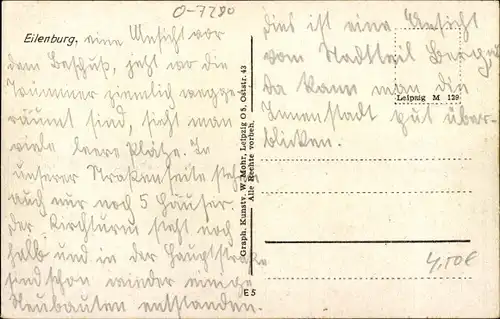 O-7280
Eilenburg. eine Ansicht vor
dem Beschuß, jetzt wo die
Trümmer ziemlich wegge-
räumt sind, sieht man
viele leere Plätze. In
unserer Straßenseite stehn
auch nur noch 5 Häuser.
Der Kirchturm sieht noch
halb und in der Hauptstraße
sind schon wieder einige
Neubauten entstanden.
Graph. Kunstv. W. Mohr, Leipzig O 5, Oststr. 43
Alle Rechte vorbeh.
E 5
Dies ist eine Ansicht
vom Stadtteil Berge
da kann man die
Leipzig M 129
Innenstadt gut über-
blicken.
4,50€